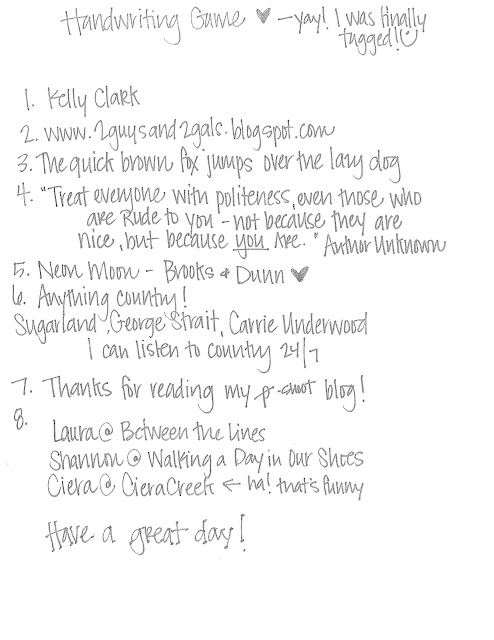 Handwriting Game ♥ - yay! I was finally
tagged! ☺
1. Kelly Clark
2. www.2guysand2gals.blogspot.com
3. The quick brown fox jumps over the lazy dog
4. "Treat everyone with politeness, even those who
are Rude to you - not because they are
nice, but because you Are." Author Unknown
5. Neon Moon - Brooks & Dunn ♥
6. Anything country!
Sugarland, George Strait, Carrie Underwood
I can listen to country 24/7
7. Thanks for reading my blog!
8.
Laura @ Between the Lines
Shannon @ Walking a Day in Our Shoes
Ciera @ CieraCreek ← ha! that's funny
Have a great day!